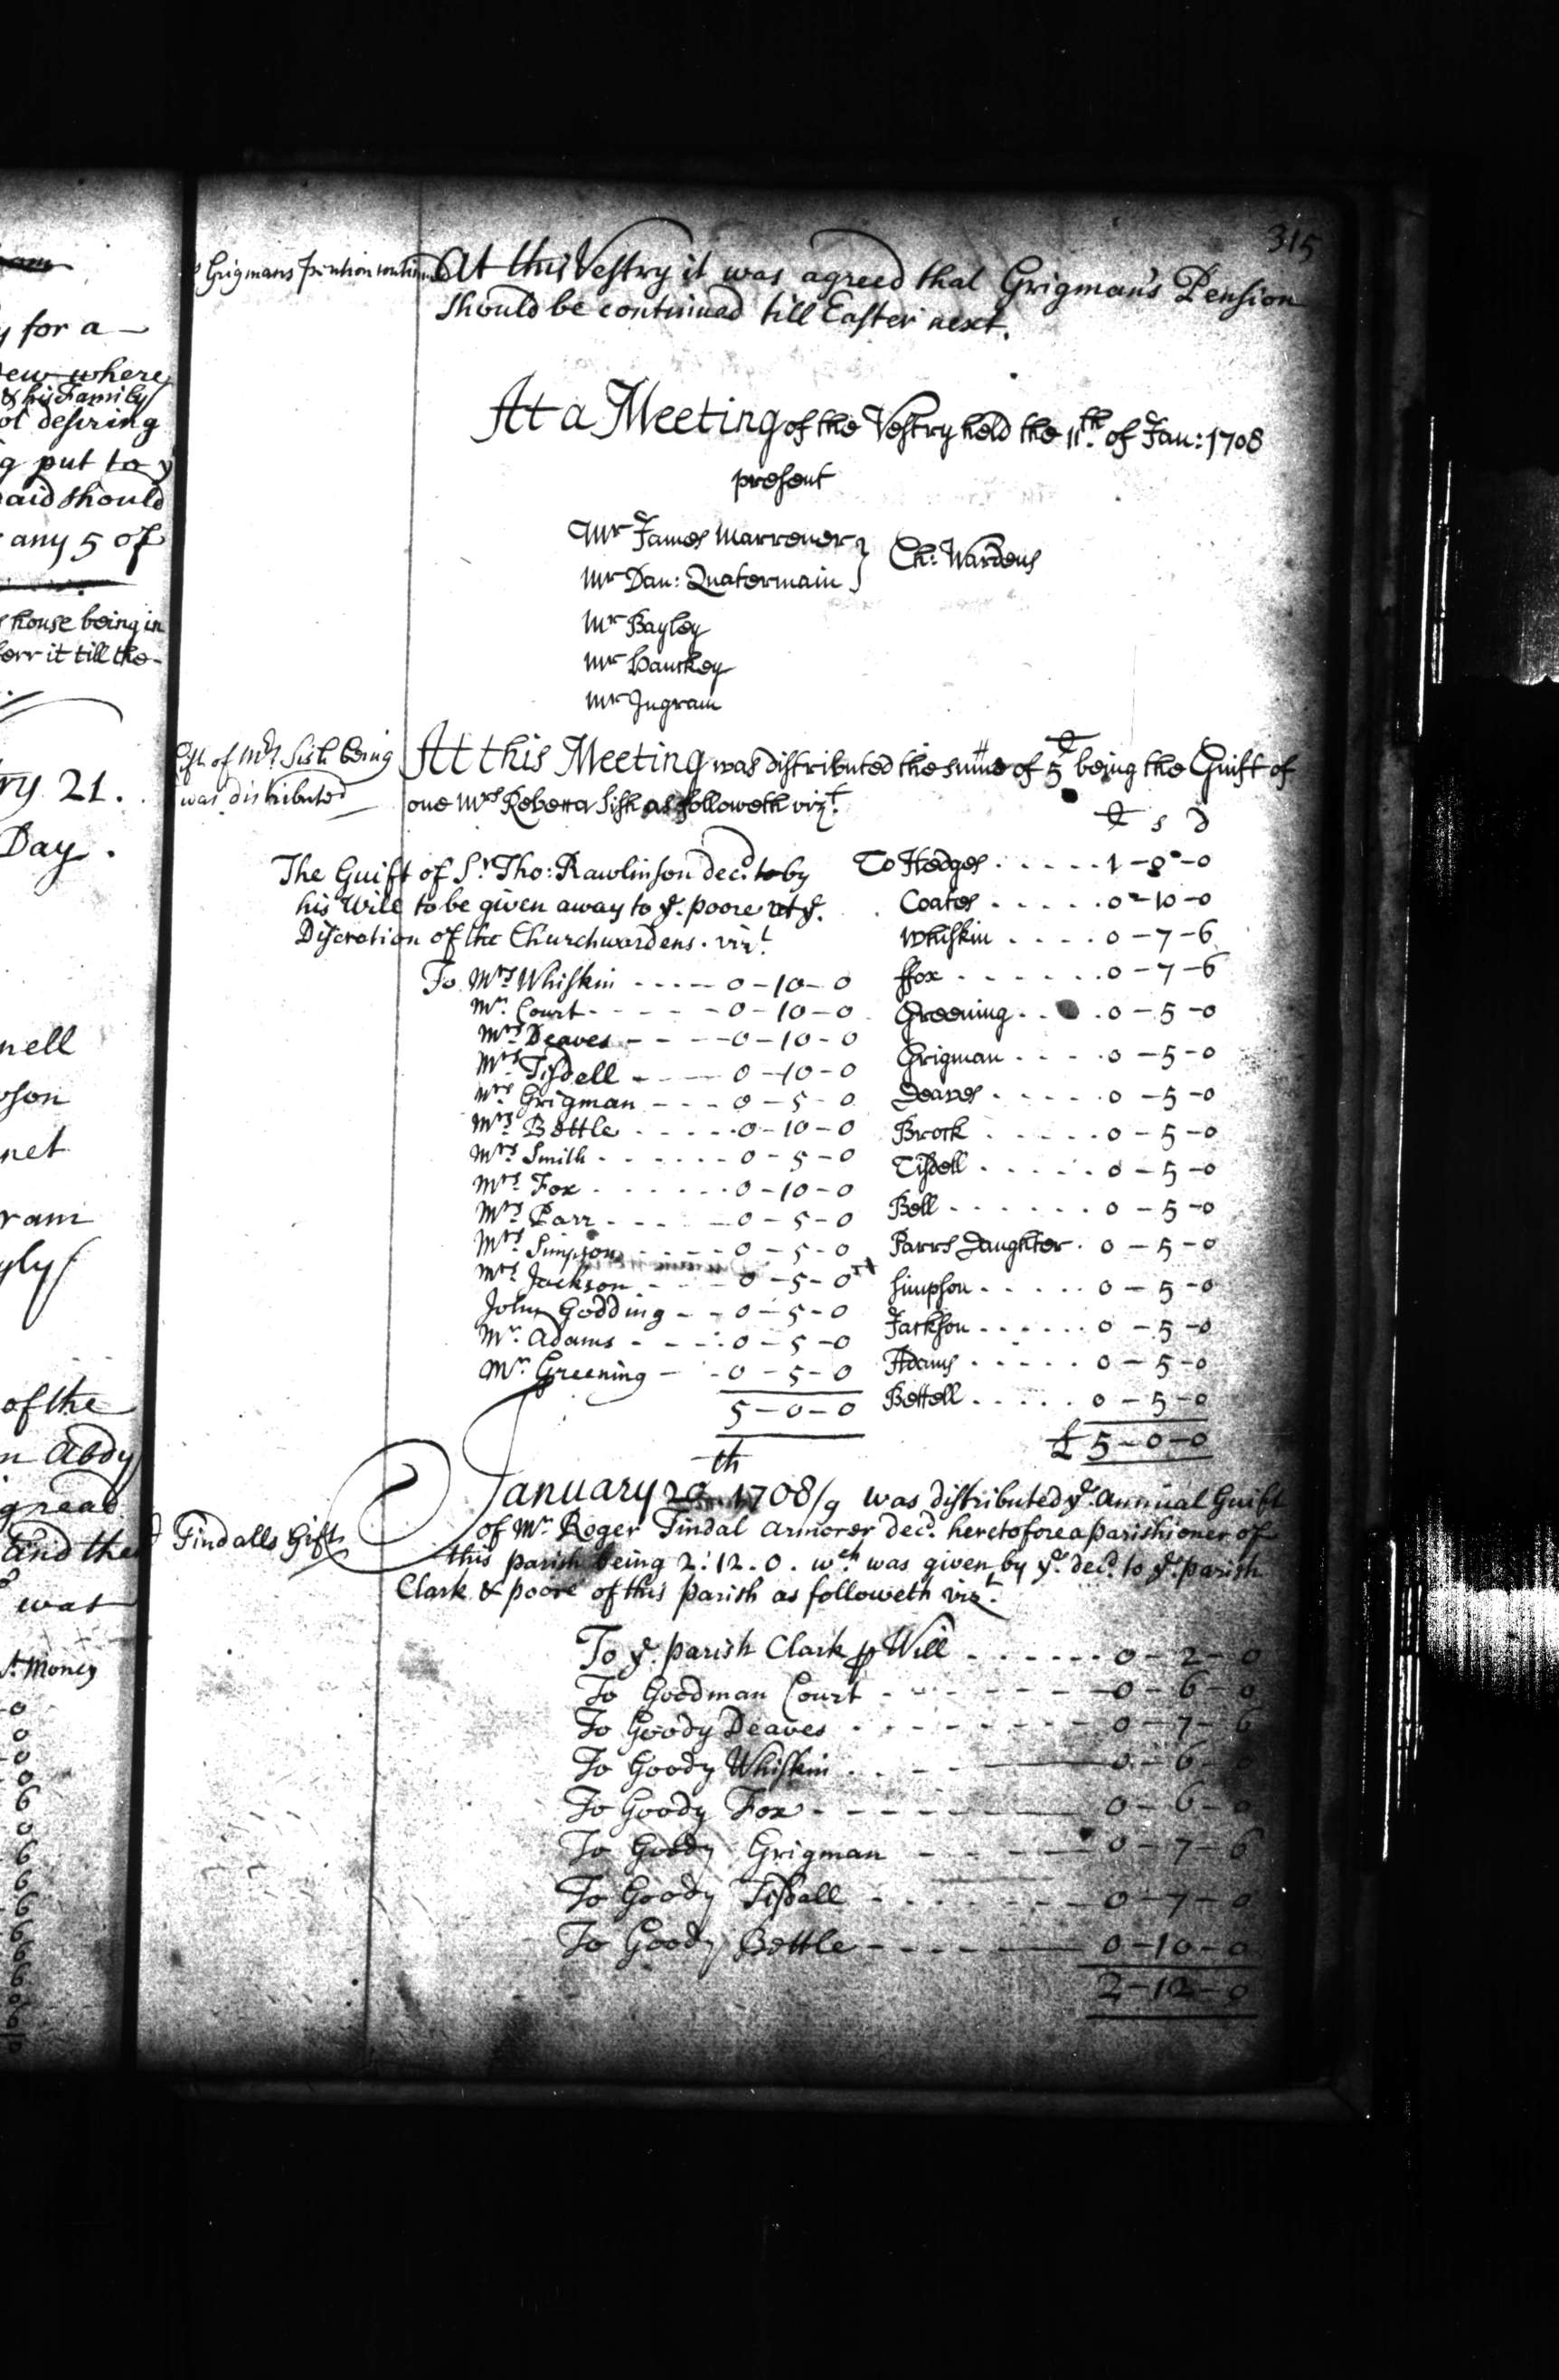 y for a —
ew where
& his Family
ot desiring
g put to yͤ
said should
any 5 of
house being in
ferr it till the -
ry 21.
Day.
nell
son
net
ram
yly
of the
n Abdy
great
and the
was
Money
315
Grigmans pention continued
At this Vestry it was agreed that Grigman's Pension
should be continued till Easter next.
At a Meeting of the Vestry held the 11th. of Jan: 1708
present
Mr James Marrener } Ch: Wardens
Mr Dan: Quatermain }
Mr Bayley
Mr Hanckey
Mr Ingram
Gift of Mrs. Sish being
was distributed
At this Meeting was distributed the sume of 5 £ being the Guift of
one Mrs Rebecca Sish as followeth vizt.
£ s d
To Hedges . . . . . 1 - 8 - 0
Coates . . . . . 0 - 10 - 0
Whiskin . . . . 0 - 7 - 6
ffox . . . . . . 0 - 7 - 6
Greening . . . 0 - 5 - 0
Grigman . . . . 0 - 5 - 0
Deaves . . . . . 0 - 5 - 0
Brock . . . . . 0 - 5 - 0
Tisdell . . . . . 0 - 5 - 0
Bell . . . . . . 0 - 5 - 0
Parrs Daughter . 0 - 5 - 0
Simpson . . . . . 0 - 5 - 0
Jackson . . . . . . 0 - 5 - 0
Adams . . . . . 0 - 5 - 0
Bettell . . . . . 0 - 5 - 0
£ 5 - 0 - 0
The Guift of Sr. Tho: Rawlinson decd. to by
his Will to be given away to ye. poore at ye.
Discretion of the Churchwardens. vizt.
To Mrs Whiskin - - - - 0 - 10 - 0
Mr. Court - - - - - 0 - 10 - 0
Mrs Deaves - - - - 0 - 10 - 0
Mrs Tisdell - - - - 0 - 10 - 0
Mrs Grigman - - - 0 - 5 - 0
Mrs. Bettle . . . . . 0 - 10 - 0
Mrs. Smith . . . . . . 0 - 5 - 0
Mrs. Fox . . . . . . 0 - 10 - 0
Mrs. Parr . . . . . 0 - 5 - 0
Mrs. Simpson - - - - - 0 - 5 - 0
Mrs. Jackson - - - - 0 - 5 - 0
John Godding - - 0 - 5 - 0
Mr. Adams - - - - 0 - 5 - 0
Mr. Greening - - 0 - 5 - 0
5 - 0 - 0
Tindalls Gift
January 20th 1708/9 was distributed ye. annual Guift
of Mr. Roger Tindal Armorer decd. heretofore a parishioner of
this parish being 2 : 12 . 0 . wch. was given by ye. decd. to ye. parish
Clark & poore of this parish as followeth vizt.
To ye. parish Clark ꝑ Will . . . . . . 0 - 2 - 0
To Goodman Court - - - - - - 0 - 6 - 0
To Goody Deaves . - - - - - - 0 - 7 - 6
To Goody Whiskin . . - - —— 0 - 6 - 0
To Goody Fox - - - - - —— 0 - 6 - 0
To Goody Grigman - - - —— 0 - 7 - 6
To Goody Tisdall - - - - - - - 0 - 7 - 0
To Goody Bettle - - - - - —— 0 - 10 - 0
2 - 12 - 0